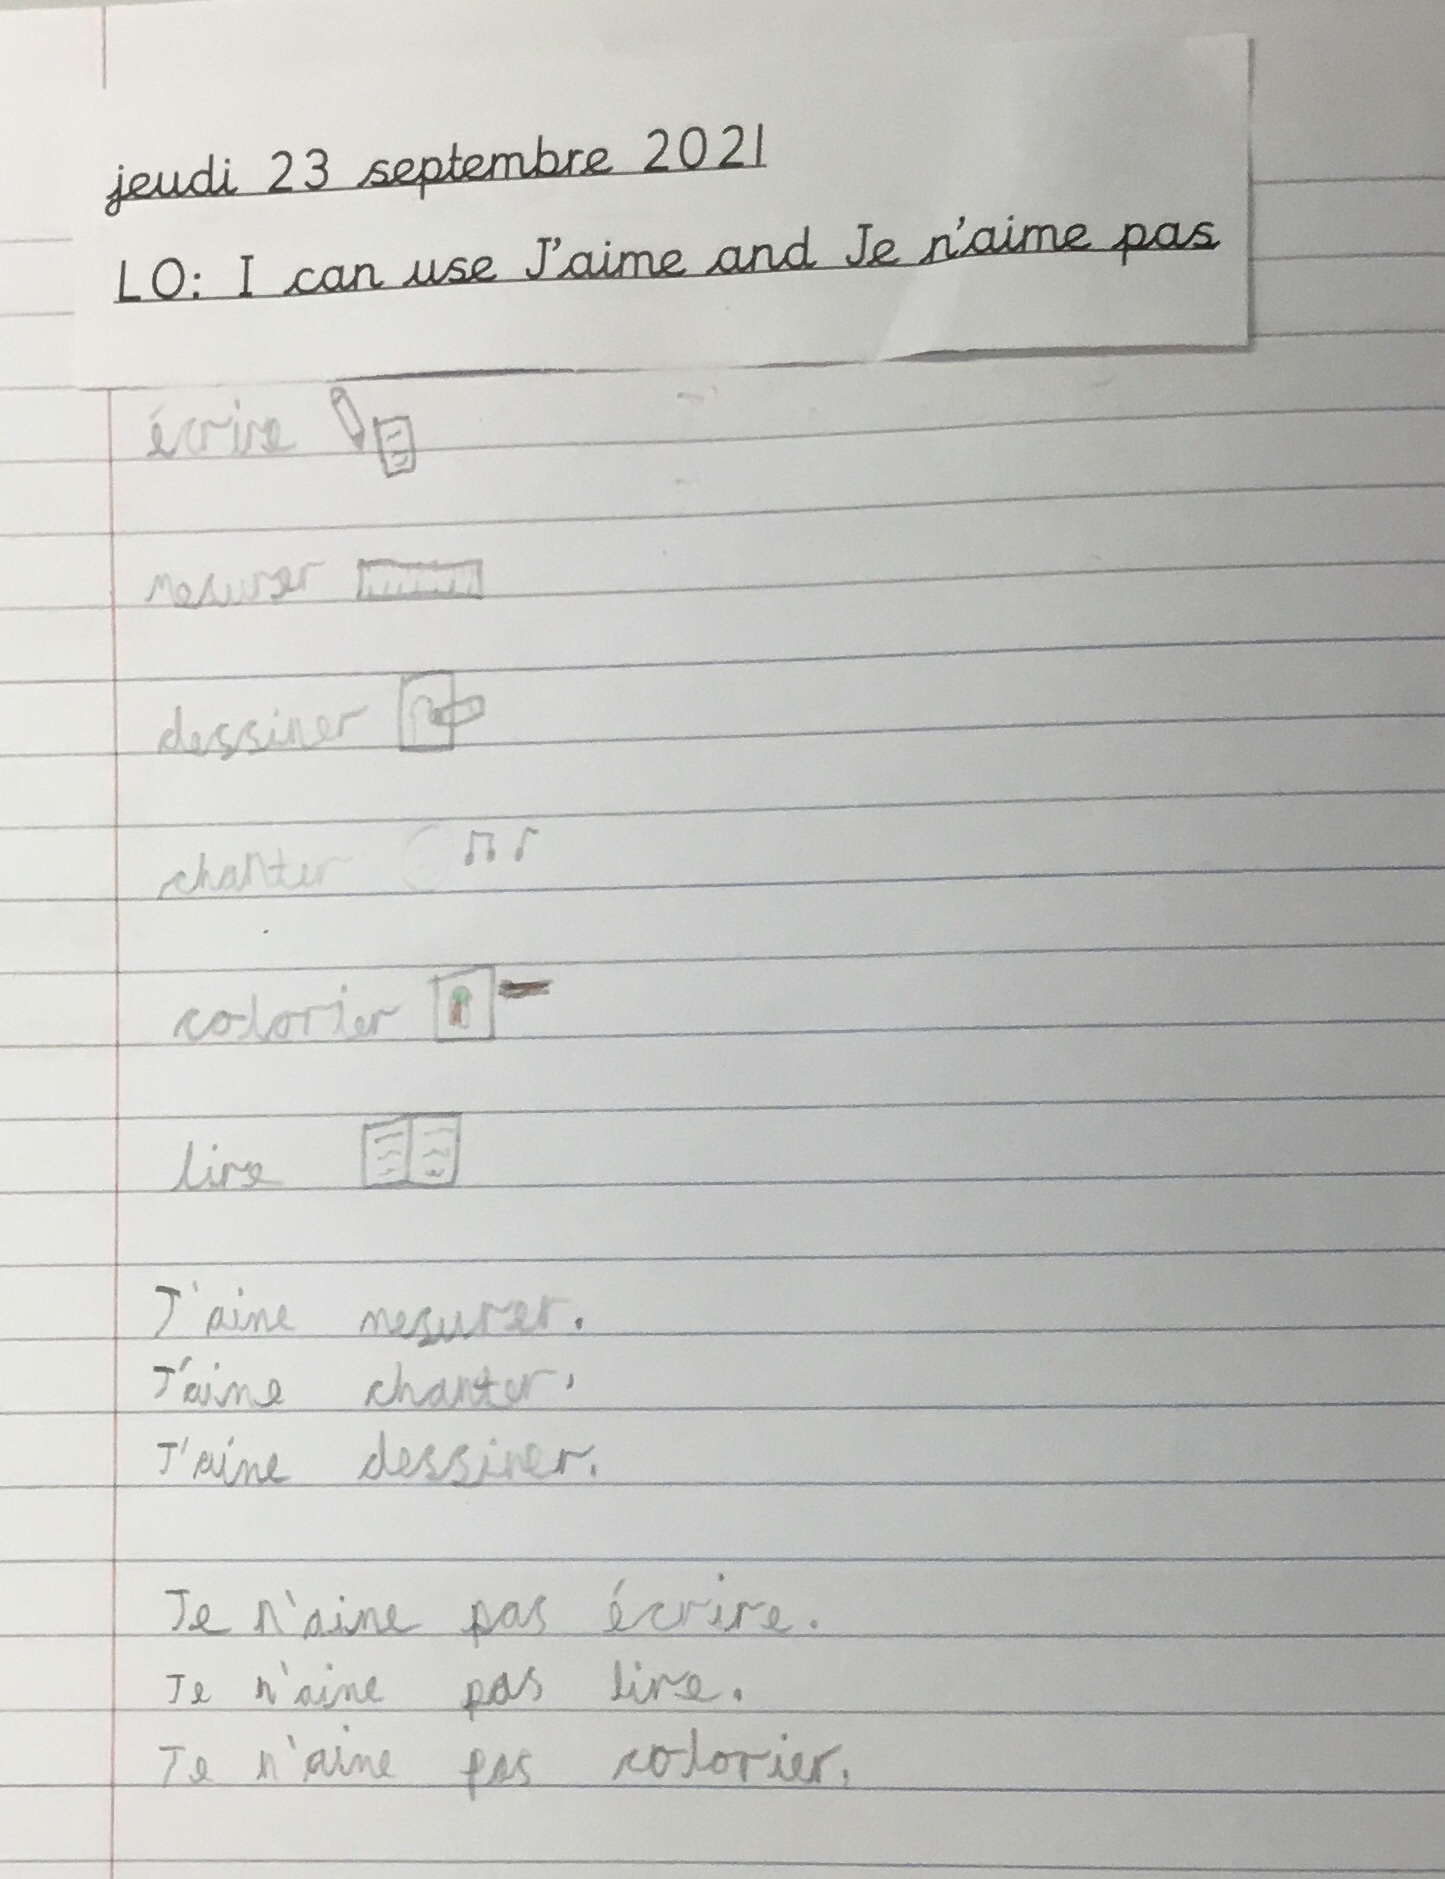 jeudi 23 septembre 2021
LO: I can use J'aime and Je n'aime pas
écrire
mesurer
dessiner
chanter
colorier
lire
J'aime mesurer.
J'aime chanter.
J'aime dessiner.
Je n'aime pas écrire.
Je n'aime pas lire.
Je n'aime pas colorier.